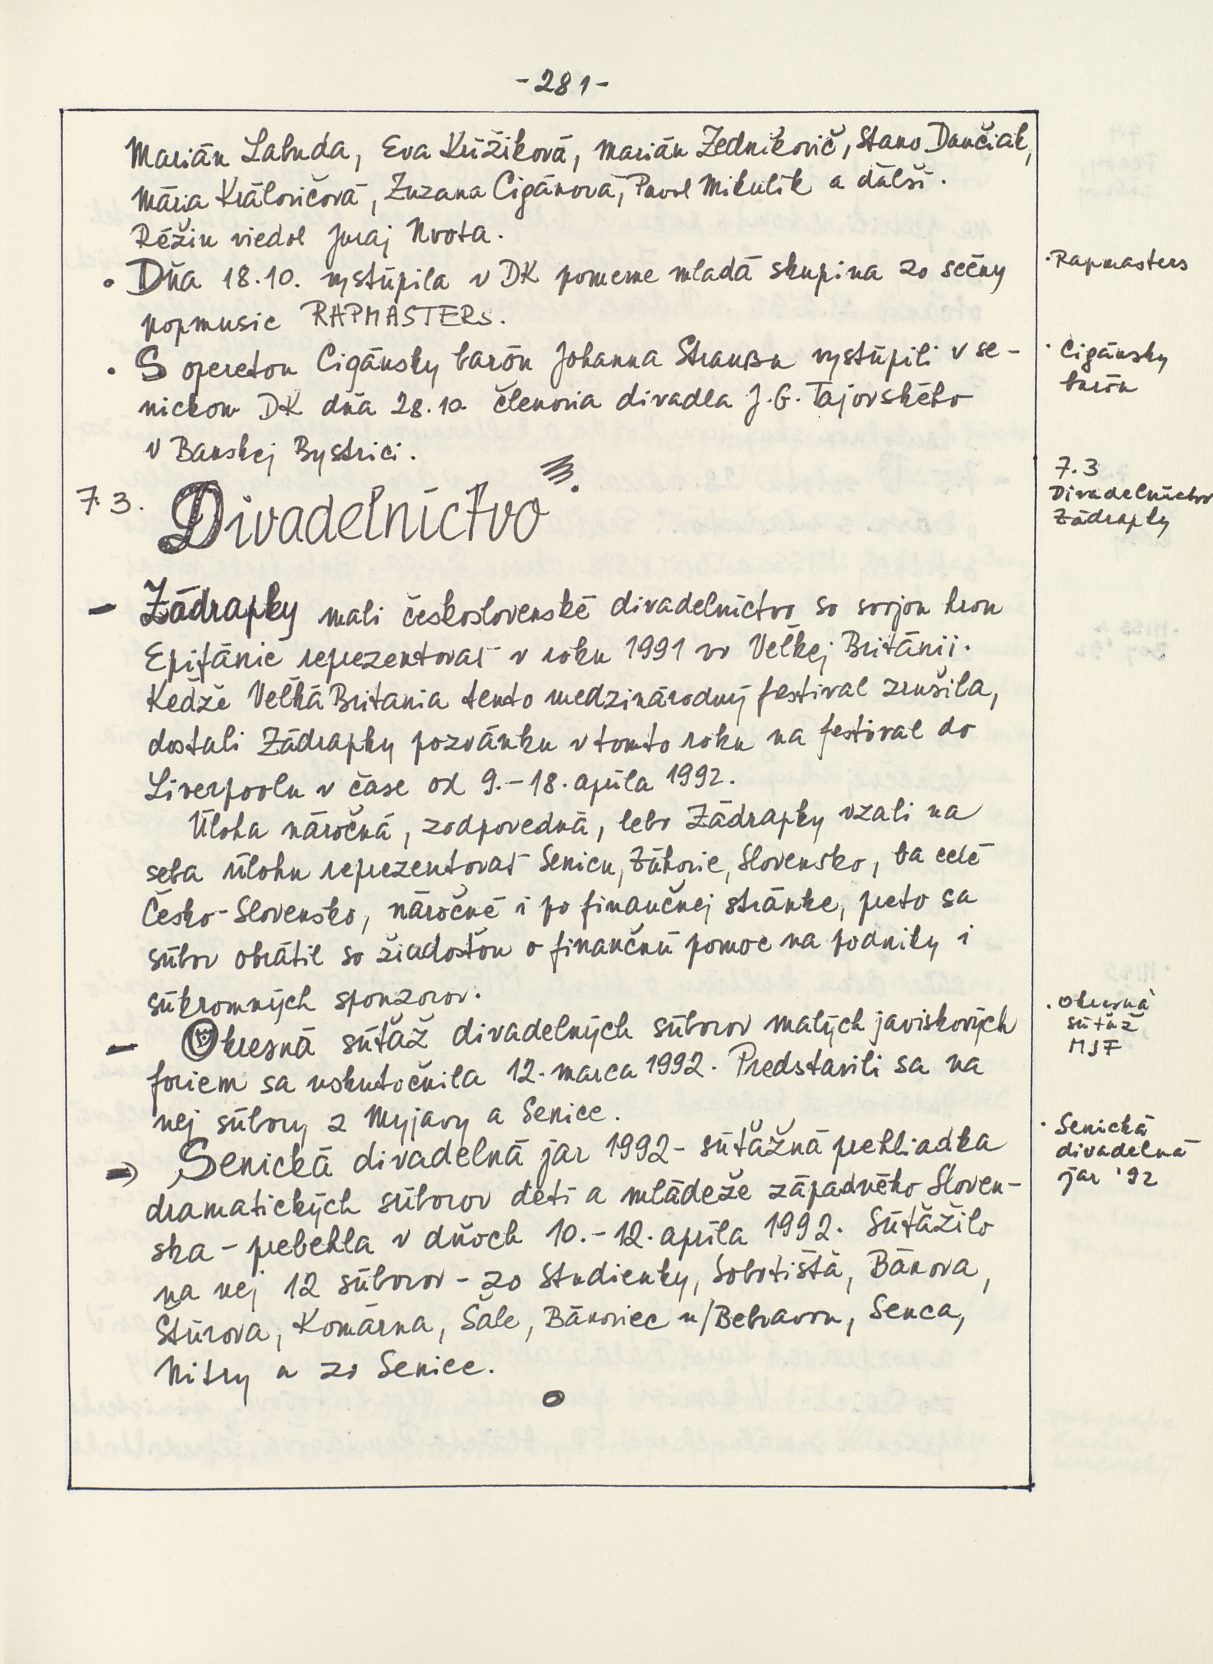 -281-
Marián Labuda, Eva Krížiková, Marián Zednikovič, Stano Dančiak,
Mária Kráľovičová, Zuzana Cigánová, Pavol Mikulík a ďalší.
Réžiu viedol Juraj Nvota.
• Dňa 18.10. vystúpila v DK pomerne mladá skupina zo scény
popmusic RAPMASTERS.
• S operetou Cigánsky barón Johanna Straussa vystúpili v se-
nickom DK dňa 28.10. členovia divadla J.G. Tajovského
v Banskej Bystrici.
7.3. Divadelníctvo
- Zádrapky mali československé divadelníctvo so svojou hrou
Epifánie reprezentovať v roku 1991 vo Veľkej Británii.
Keďže Veľká Britania tento medzinárodný festival zrušila,
dostali Zádrapky pozvánku v tomto roku na festival do
Liverpoolu v čase od 9.-18. apríla 1992.
Úloha náročná, zodpovedná, lebo Zádrapky vzali na
seba úlohu reprezentovať Senicu, Záhorie, Slovensko, ba celé
Česko-Slovensko, náročné i po finančnej stránke, preto sa
súbor obrátil so žiadosťou o finančnú pomoc na podniky i
súkromných sponzorov.
- Okresná súťaž divadelných súborov malých javiskových
foriem sa uskutočnila 12. marca 1992. Predstavili sa na
nej súbory z Myjavy a Senice.
⇒ Senická divadelná jar 1992 - súťažná prehliadka
dramatických súborov detí a mládeže západného Sloven-
ska - prebehla v dňoch 10.-12. apríla 1992. Súťažilo
na nej 12 súborov - zo Studienky, Sobotišťa, Bánova,
Štúrova, Komárna, Šale, Bánoviec n/Bebravou, Senca,
Nitry a zo Senice.
• Rapmasters
• Cigánsky
barón
7.3
Divadelníctvo
Zádrapky
• Okresná
súťaž
MJF
• Senická
divadelná
jar '92